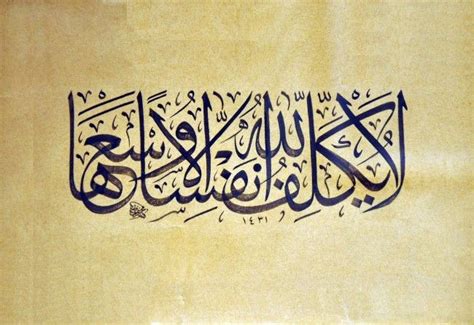 لا يُكَلِّفُ اللهُ نَفْسًا إِلَّا وُسْعَهَا
١٤٣١